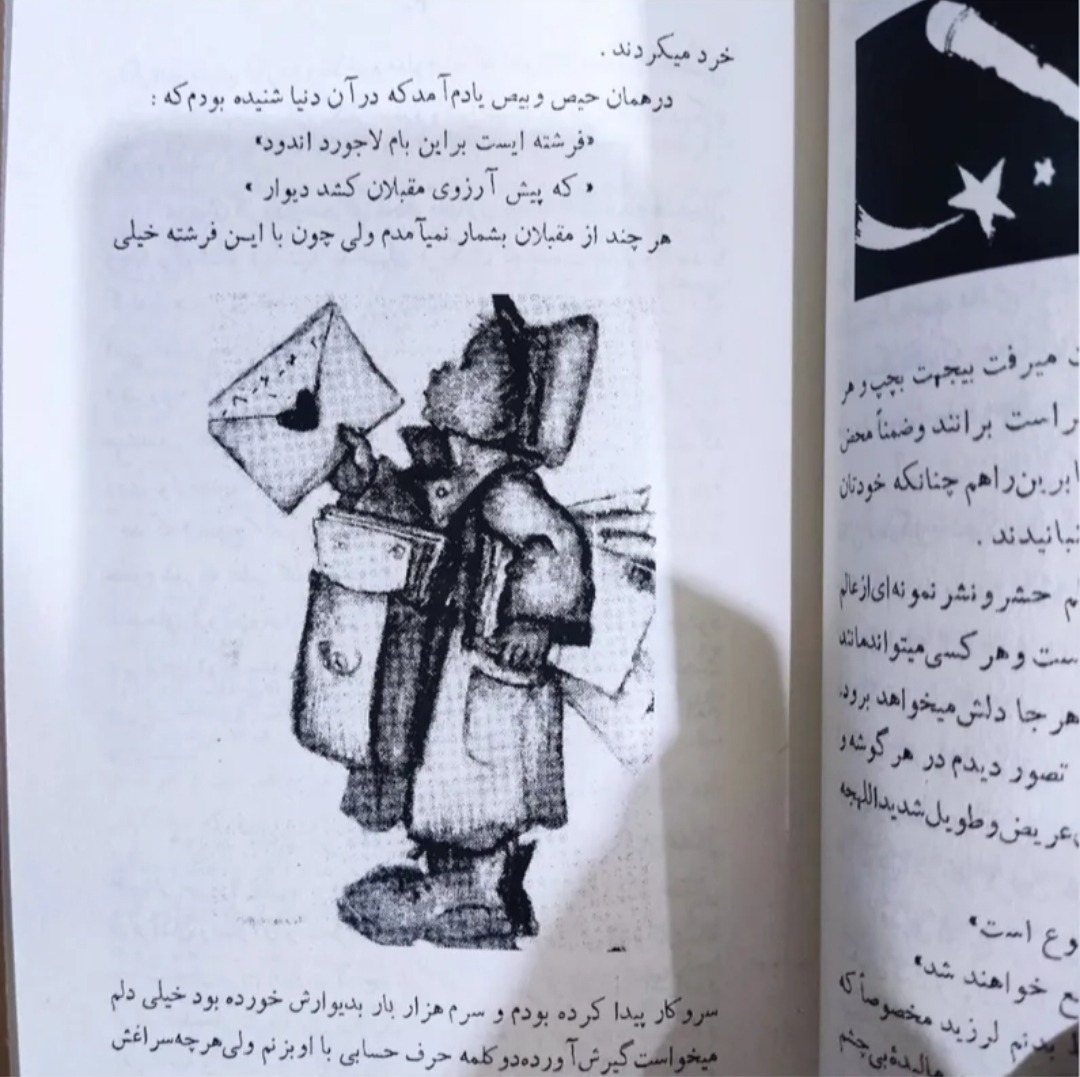 خرد میکردند .
درهمان حیص و بیص یادم آمدکه در آن دنیا شنیده بودم که :
«فرشته ایست براین بام لاجورد اندود»
« که پیش آرزوی مقبلان کشد دیوار »
هر چند از مقبلان بشمار نمیآمدم ولی چون با ایـن فرشته خیلی
سروکار پیدا کرده بودم و سرم هزار بار بدیوارش خورده بود خیلی دلم
میخواست گیرش آورده دو کلمه حرف حسابی با او بزنم ولی هرچه سراغش
میرفت بیجهت بچپ و هر
راست برانند وضمناً محض
راهم چنانکه خودتان
نبانیدند .
حشر و نشر نمونه‌ای از عالم
ست و هر کسی میتواند مانند
هر جا دلش میخواهد برود.
تصور دیدم در هر گوشه و
عریض و طویل شدیداللهجه
وع است»
خواهند شد»
بدنم لرزید مخصوصاً که